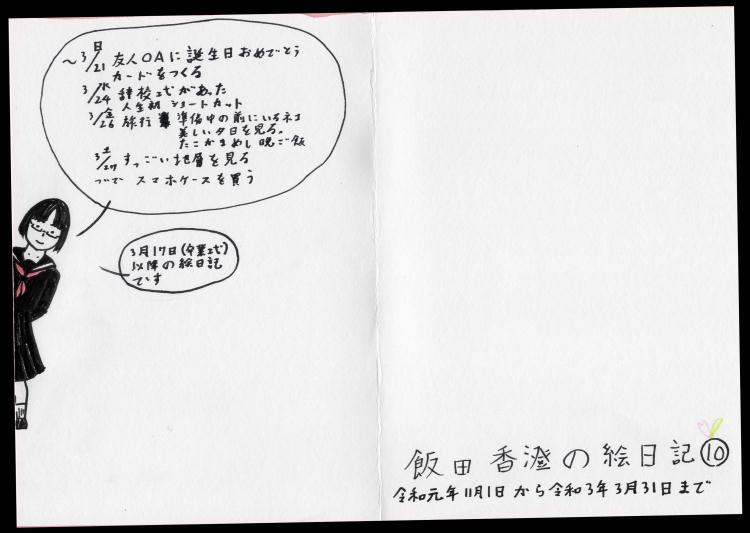 ~3/21日 友人OAに誕生日おめでとう
カードをつくる
3/24水 辞校式があった
人生初ショートカット
3/26金 旅行 準備中の前にいるネコ
美しい夕日を見る。
たこかまめし晩ご飯
3/27土 すっごい地層を見る
ついで スマホケースを買う
3月17日(卒業式)
以降の絵日記
です
飯田香澄の絵日記⑩
令和元年11月1日から令和3年3月31日まで